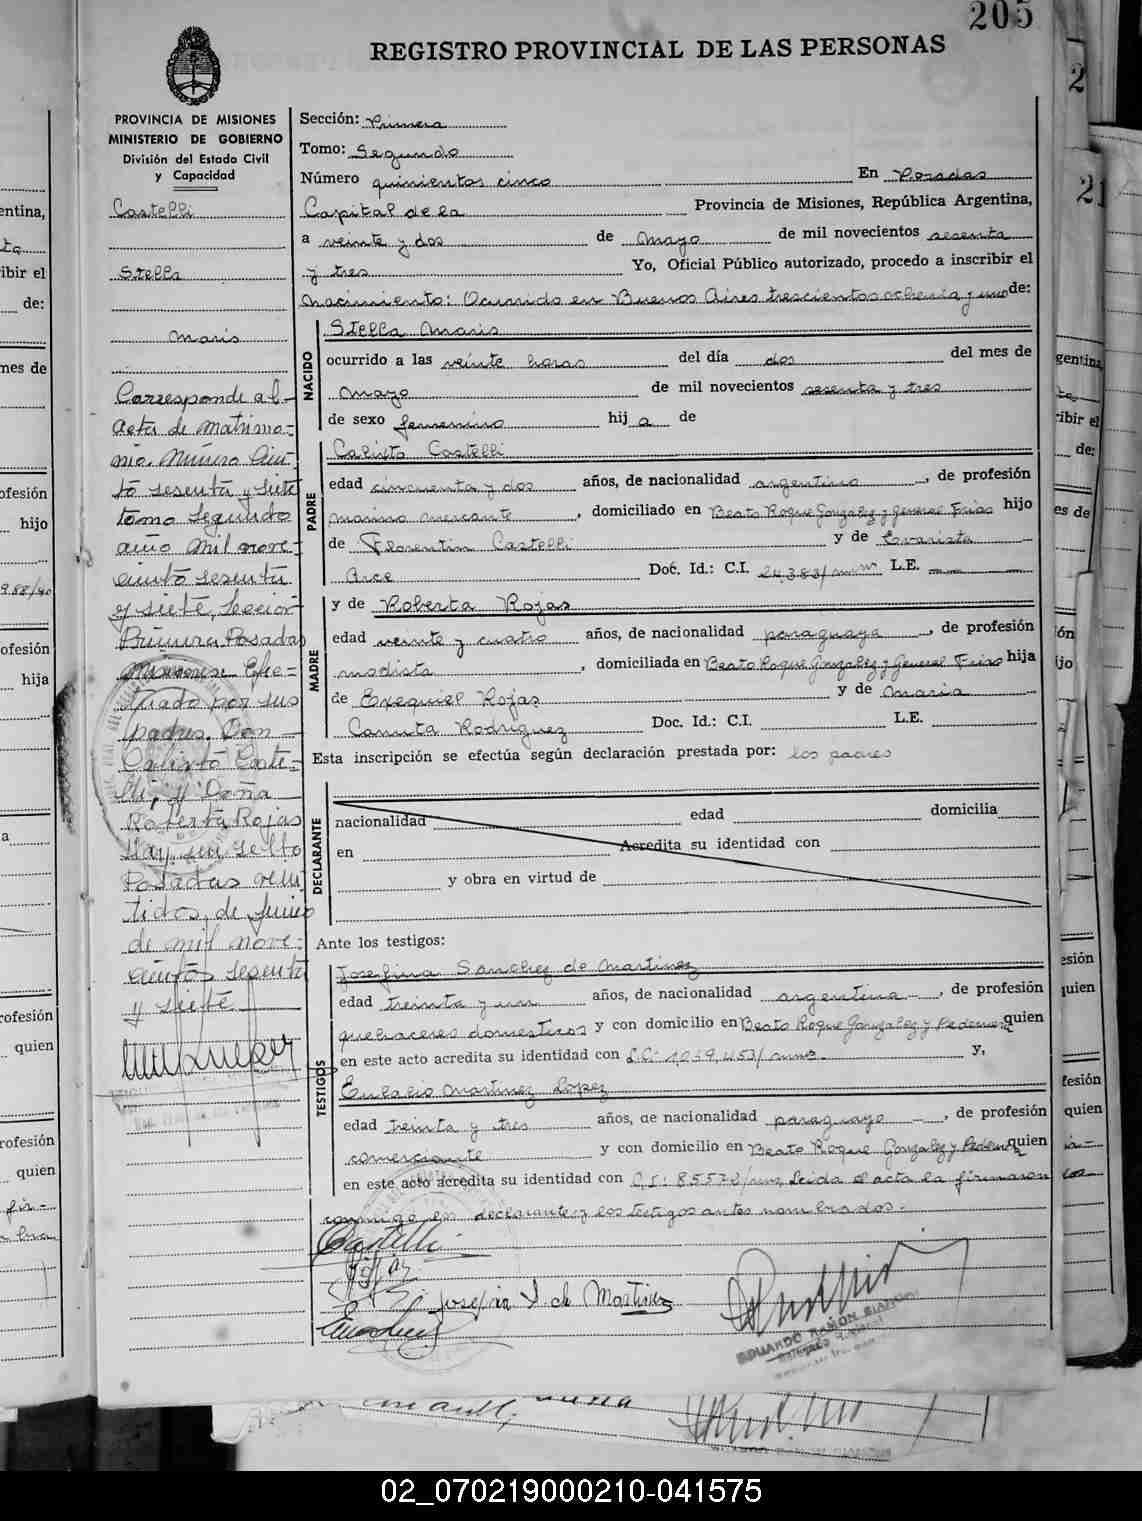 205
REGISTRO PROVINCIAL DE LAS PERSONAS
PROVINCIA DE MISIONES
MINISTERIO DE GOBIERNO
División del Estado Civil
y Capacidad
Castelli
Stella
Maris
Corresponde al
Acta de Matrimo-
nio. Número Cien-
to sesenta y siete
tomo segundo
año mil nove-
cientos sesenta
y siete, Sección
Primera Posadas
Misiones. Efec-
tuado por sus
padres. Don
Calixto Caste-
lli, y Doña
Roberta Rojas
Hay un sello
Posadas vein-
tidos, de Junio
de mil nove-
cientos sesenta
y siete
Sección: Primera
Tomo: Segundo
Número quinientos cinco En Posadas
Capital de la Provincia de Misiones, República Argentina,
a veinte y dos de Mayo de mil novecientos sesenta
y tres Yo, Oficial Público autorizado, procedo a inscribir el
nacimiento: Ocurrido en Buenos Aires trescientos ochenta y uno de:
NACIDO
Stella Maris
ocurrido a las veinte horas del día dos del mes de
Mayo de mil novecientos sesenta y tres
de sexo femenino hij a de
PADRE
Calixto Castelli
edad cincuenta y dos años, de nacionalidad argentino, de profesión
marino mercante, domiciliado en Beato Roque González y General Frías hijo
de Florentin Castelli y de Evarista
Arce Doc. Id.: C.I. 24.383/ L.E.
MADRE
y de Roberta Rojas
edad veinte y cuatro años, de nacionalidad paraguaya, de profesión
modista, domiciliada en Beato Roque Gonzalez y General Frías hija
de Exequiel Rojas y de Maria
Camuta Rodriguez Doc. Id.: C.I. L.E.
Esta inscripción se efectúa según declaración prestada por: los padres
DECLARANTE
nacionalidad edad domicilia
en Acredita su identidad con
y obra en virtud de
Ante los testigos:
TESTIGOS
Josefina Sanchez de Martinez
edad treinta y un años, de nacionalidad argentina, de profesión
quehaceres domesticos y con domicilio en Beato Roque Gonzalez y quien
en este acto acredita su identidad con L.C: 1,039,453/ y,
Eulalio Martinez Lopez
edad treinta y tres años, de nacionalidad paraguayo, de profesión
comerciante y con domicilio en Beato Roque Gonzalez y quien
en este acto acredita su identidad con C.I: Leida el acta la firmaron
conmigo los declarantes y los testigos antes nombrados.
Castelli
Josefina S. de Martinez
EDUARDO RAMÓN BIANCHI
02_070219000210-041575